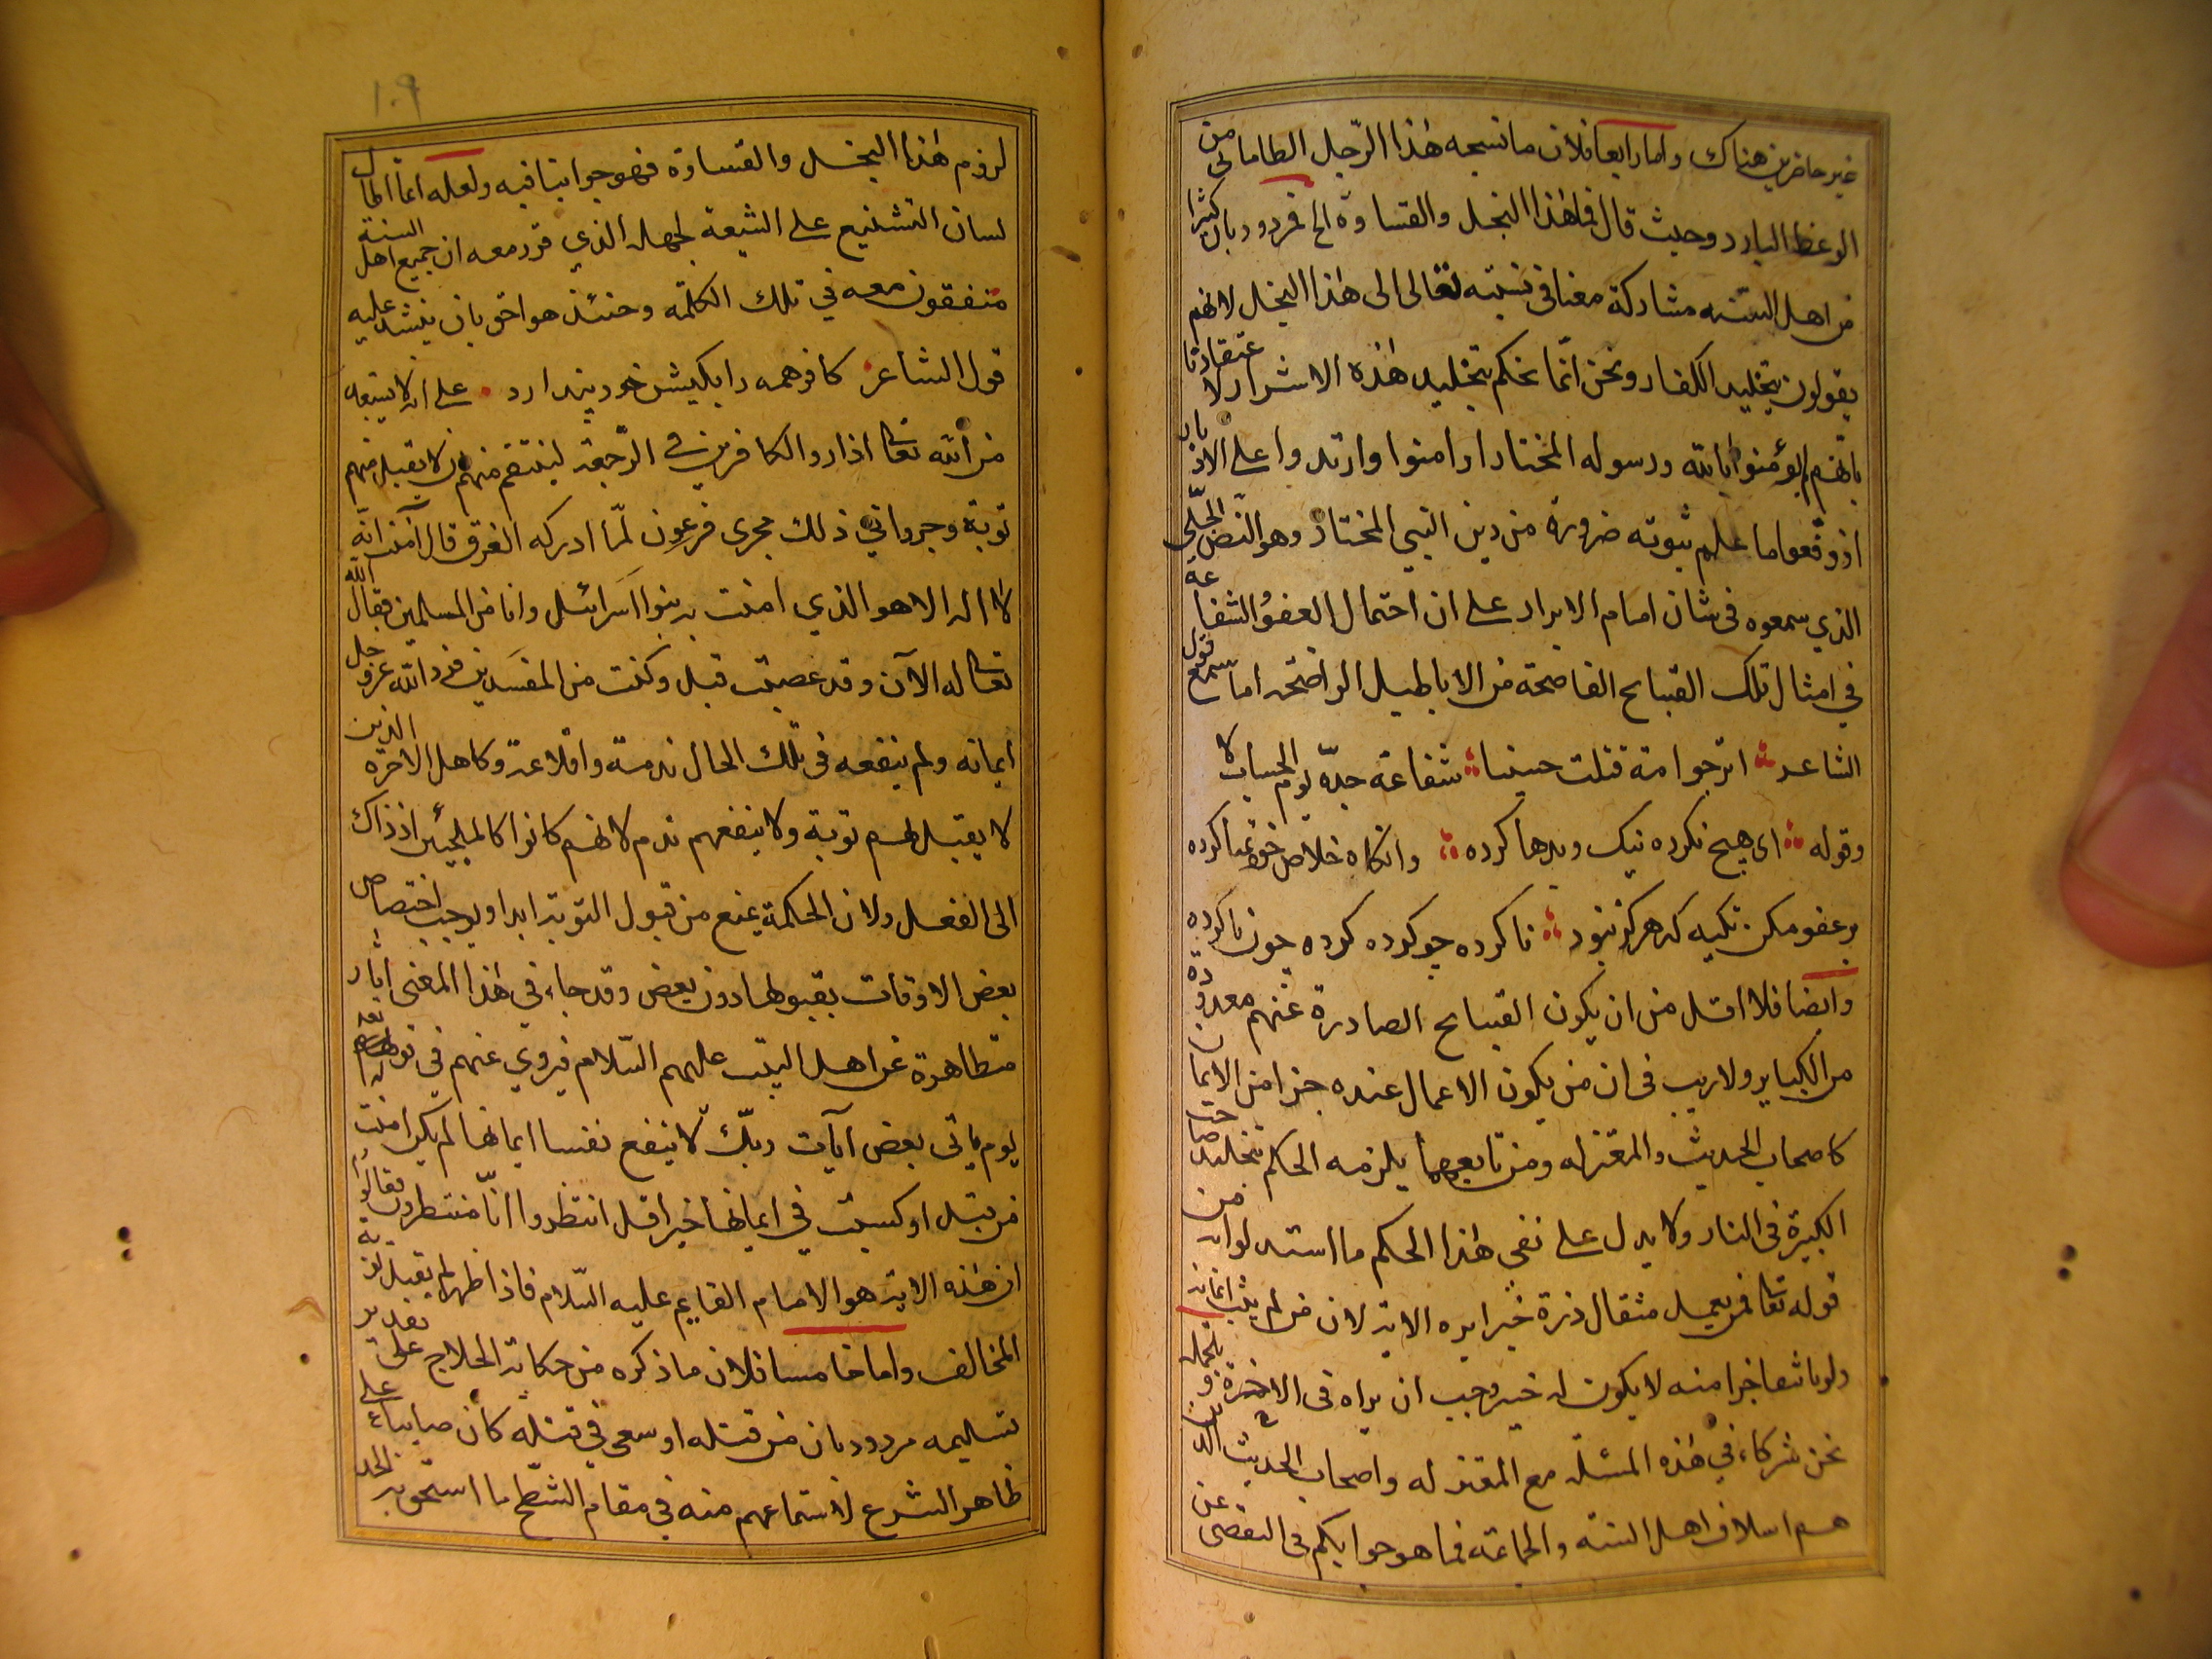 غير حاضرين هناك واما رابعا فلان ما نسجه هذا الرّجل الطاما لى من
الوعظ البارد وحيث قال فما هذا البخل والقساوة الخ فمردود بان كثيرا
من اهل السّنّه مشاركة معنا فى نسبته تعالى الى هذا البخل لانهم
يقولون بتخليد الكفار ونحن انّما نحكم بتخليد هذه الاشرار لاعتقادنا
بانهم لم يؤمنوا بالله ورسوله المختار او امنوا وارتدوا على الادبار
اذ وقعوا ما علم ثبوته ضرورة من دين النبي المختار وهو النّص الجّلى
الذي سمعوه فى شان امام الابرار على ان احتمال العفو الشفاعة
في امثال تلك القبايح الفاضحة من الاباطيل الواضحه اما سمع قول
الشاعر اترجوا مة قتلت حسينا شفاعة جدّه يوم الحساب لا
وقوله اى هيچ نكرده نيك وبدها كرده وانكاه خلاص خود تمنا كرده
بر عفو مكن تكيه كه هركز نبود نا كرده چو كرده كرده چون ناكرده
وايضا فلا اقل من ان يكون القبايح الصادرة عنهم معدودة
من الكباير ولا ريب فى ان من يكون الاعمال عنده جزا من الايمان
كاصحاب الحديث والمعتزله ومن تابعهما يلزمه الحكم بتخليد صاحب
الكبيرة فى النار ولا يدل على نفى هذا الحكم ما استدلوا به من
قوله تعالى فمن يعمل مثقال ذرة خيرا يره الاية لان من لم يثبت ايمانه
ولو باشفا جزا منه لا يكون له خير وجب ان يراه فى الاخرة وبالجملة
نحن شركاء في هذه المسئلة مع المعتزله واصحاب الحديث الذين
هم اسلاف اهل السنه والجماعة فما هو جوابكم فى التفصى عن
١٠٩
لزوم هذا البخل والقساوة فهو جوابنا فيه ولعله انما اطال
لسان التشنيع على الشيعة لجهله الذي قرر معه ان جميع اهل السنة
متفقون معه في تلك الكلمة وحنئذ هو احق بان ينشد عليه
قول الشاعر كافر همه را بكيش خود پندارد على انه لا يتبعه
من الله تعالى اذا رد الكافرين في الرّجعة لينتقم منهم ان لا يقبل منهم
توبة وجروا في ذلك مجرى فرعون لمّا ادركه الغرق قال آمنت انه
لا اله الا هو الذي امنت به بنوا اسرائيل وانا من المسلمين فقال الله
تعالى له الآن وقد عصيت قبل وكنت من المفسدين فرد الله عز وجل
ايمانه ولم ينفعه فى تلك الحال ندمه واقلاعه وكاهل الاخرة الذين
لا يقبل لهم توبة ولا ينفعهم ندم لانهم كانوا كالملجئين اذ ذاك
الى الفعل ولان الحكمة يمنع من قبول التوبة ابدا ويوجب اختصاص
بعض الاوقات بقبولها دون بعض وقد جاء في هذا المعنى اثار
متظاهرة عن اهل البيت عليهم السّلام فيروي عنهم في قوله تعالى
يوم ياتى بعض آيات ربّك لا ينفع نفسا ايمانها لم يكن امنت
من قبل او كسبت في ايمانها خيرا قل انتظروا انّا منتظرون فقالوا
ان هذه الاية هو الامام القايم عليه السّلام فاذا ظهر لم يقبل توبة
المخالف واما خامسا فلان ما ذكره من حكاية الحلاج على تقدير
تسليمه مردود بان من قتله او سعى في قتله كان مبايناء على
ظاهر الشرع لاستماعهم منه في مقام الشطح ما استحق به الحد